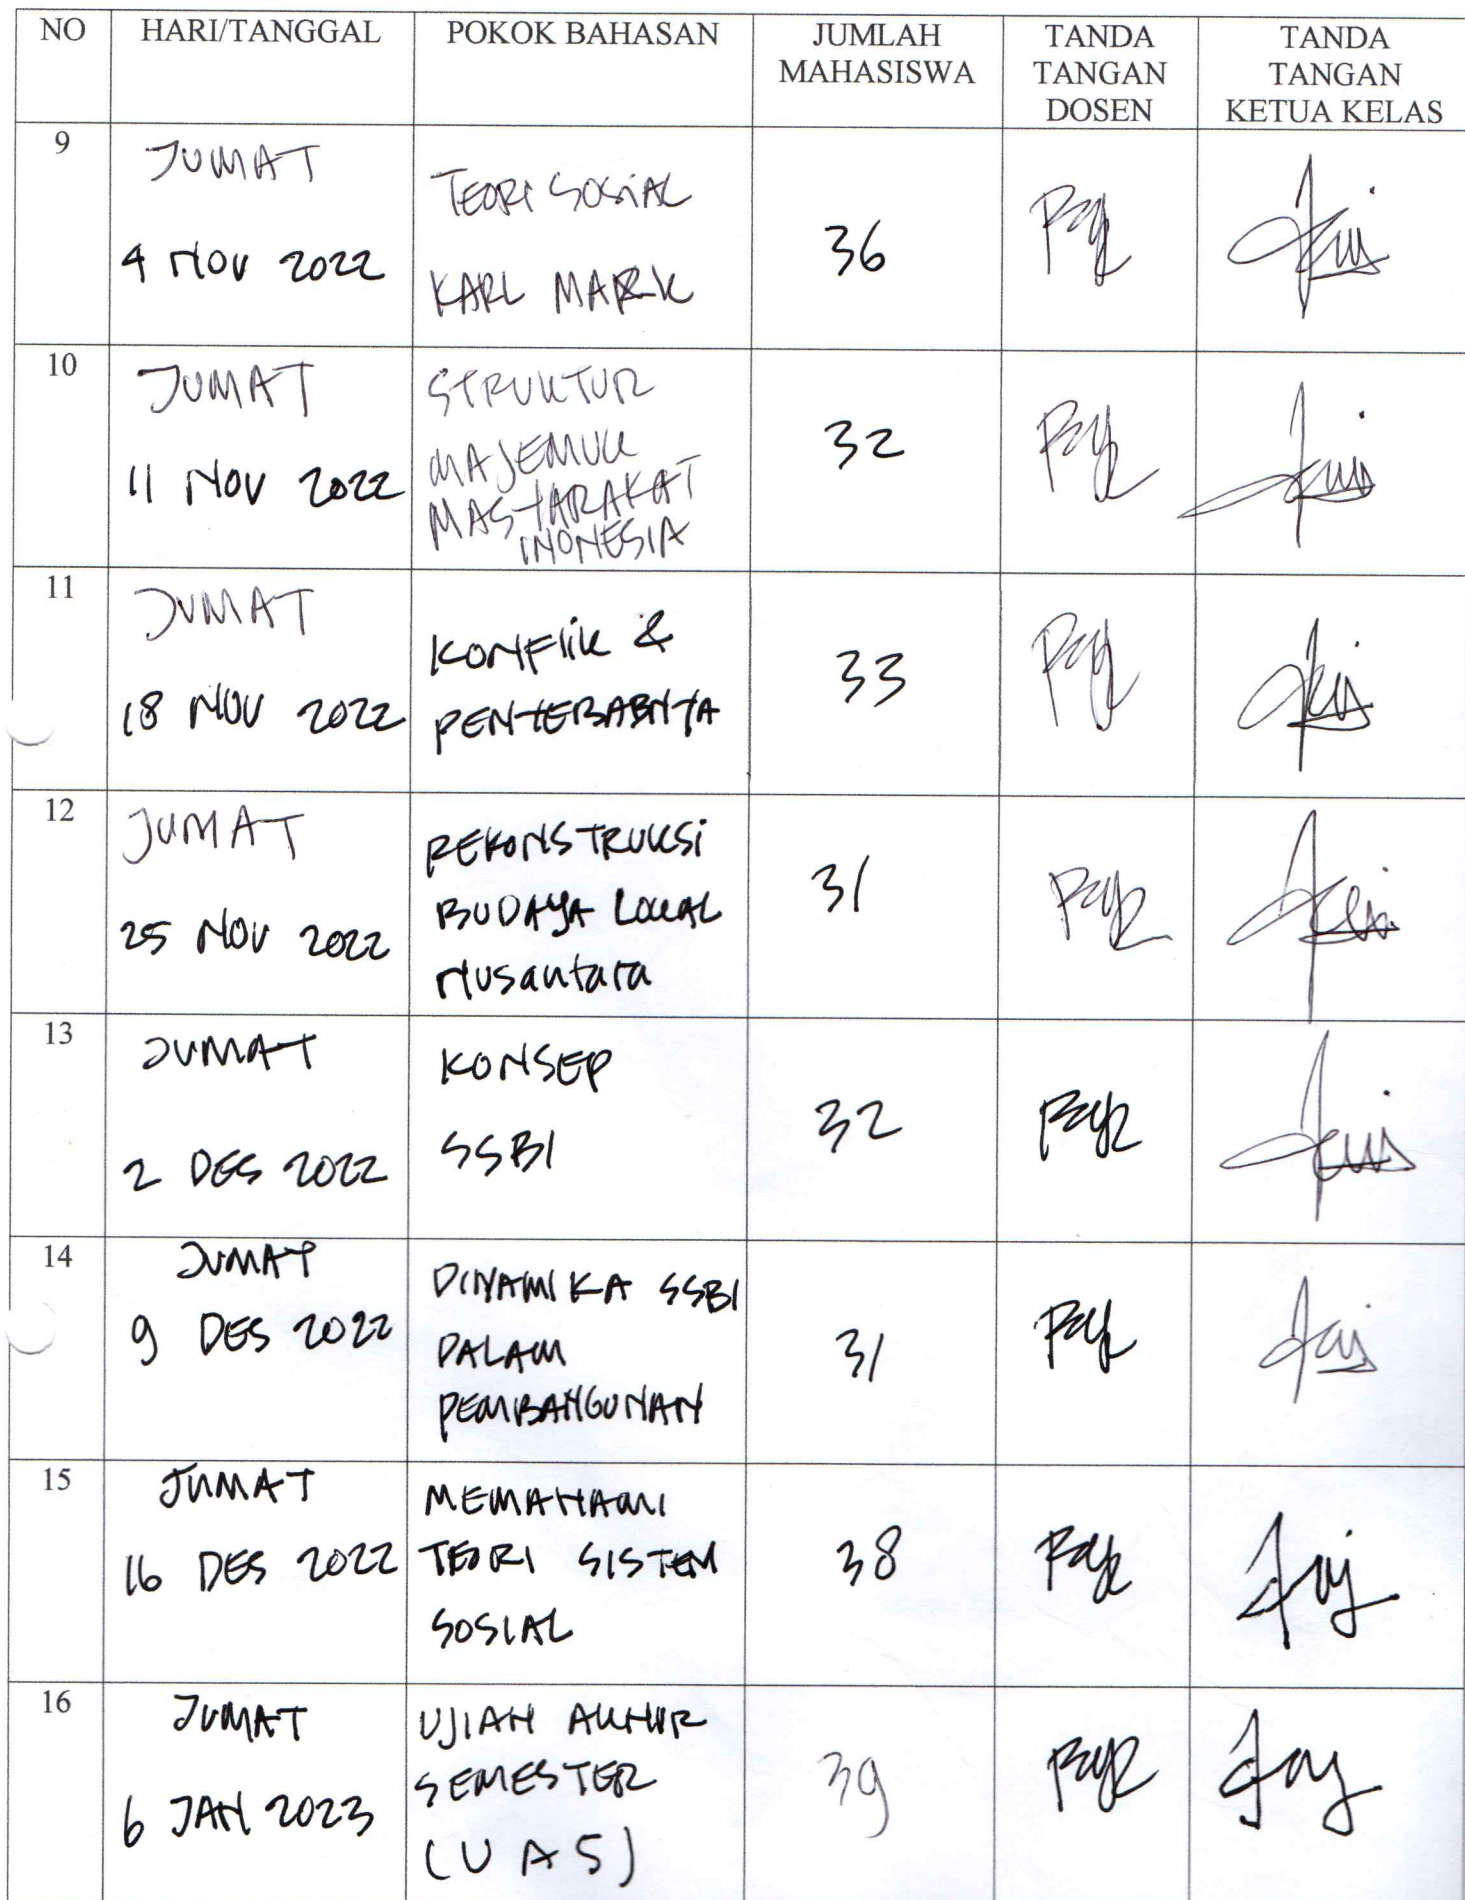 NO HARI/TANGGAL POKOK BAHASAN JUMLAH MAHASISWA TANDA TANGAN DOSEN TANDA TANGAN KETUA KELAS
9
JUMAT
4 NOV 2022
TEORI SOSIAL
KARL MARK
36
10
JUMAT
11 NOV 2022
STRUKTUR
MAJEMUK
MASYARAKAT
INONESIA
32
11
JUMAT
18 NOV 2022
KONFlik &
PENYEBABNYA
33
12
JUMAT
25 NOV 2022
REKONSTRUKSi
BUDAYA LOKAL
Nusantara
31
13
JUMAT
2 DES 2022
KONSEP
SSBI
32
14
JUMAT
9 DES 2022
DINAMIKA SSBI
DALAM
PEMBANGUNAN
31
15
JUMAT
16 DES 2022
MEMAHAMI
TEORI SISTEM
SOSIAL
38
16
JUMAT
6 JAN 2023
UJIAN AKHIR
SEMESTER
(UAS)
39